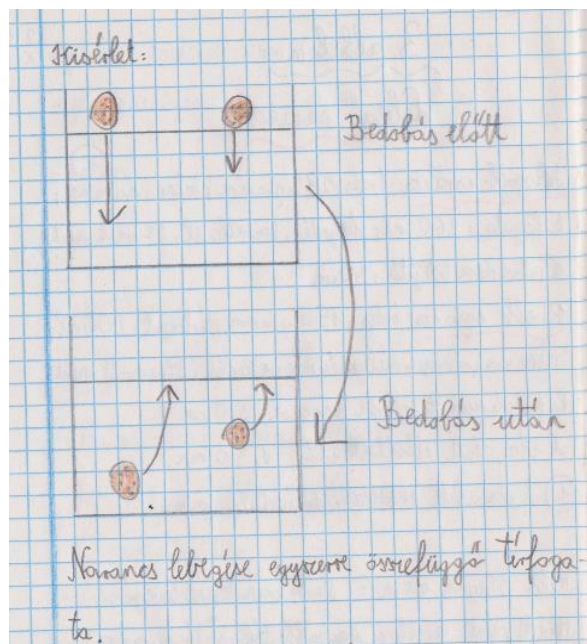 Kisérlet:
Bedobás előtt
Bedobás után
Narancs lebegése egyszerre összefüggő térfoga-
ta.